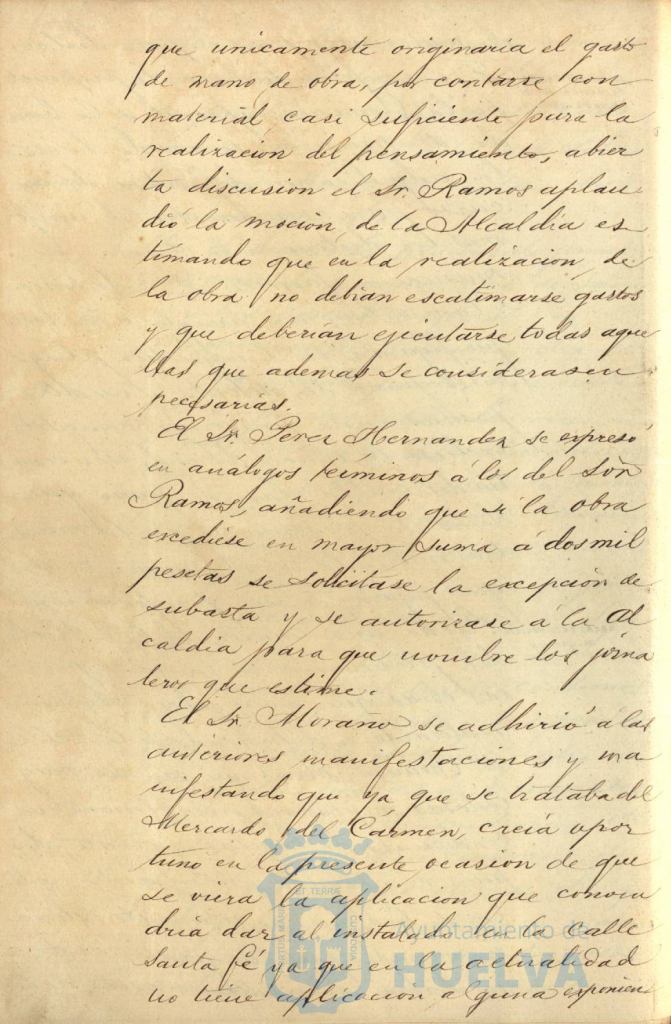 que unicamente originaria el gasto
de mano de obra, por contarse con
material casi suficiente para la
realizacion del pensamiento, abier
ta discusion el Sr. Ramos aplau
dió la moción de la Alcaldia es
timando que en la realizacion de
la obra no debian escatimarse gastos
y que deberian ejecutarse todas aque
llas que ademas se considerasen
necesarias.
El Sr. Perez Hernandez se expresó
en análogos términos á los del Sor
Ramos, añadiendo que si la obra
excediese en mayor suma á dos mil
pesetas se solicitase la excepción de
subasta y se autorizase á la Al
caldia para que nombre los jorna
leros que estime.
El Sr. Moraño, se adhirió á las
anteriores manifestaciones y ma
nifestando que ya que se trataba del
Mercardo del Cármen, creia opor
tuno en la presente ocasion de que
se viera la aplicacion que conven
dria dar al instalado en la calle
Santa Fé ya que en la actualidad
no tiene aplicacion alguna exponien
Ayuntamiento de
HUELVA
PORTUS MARIS ET TERRE CUSTODIA